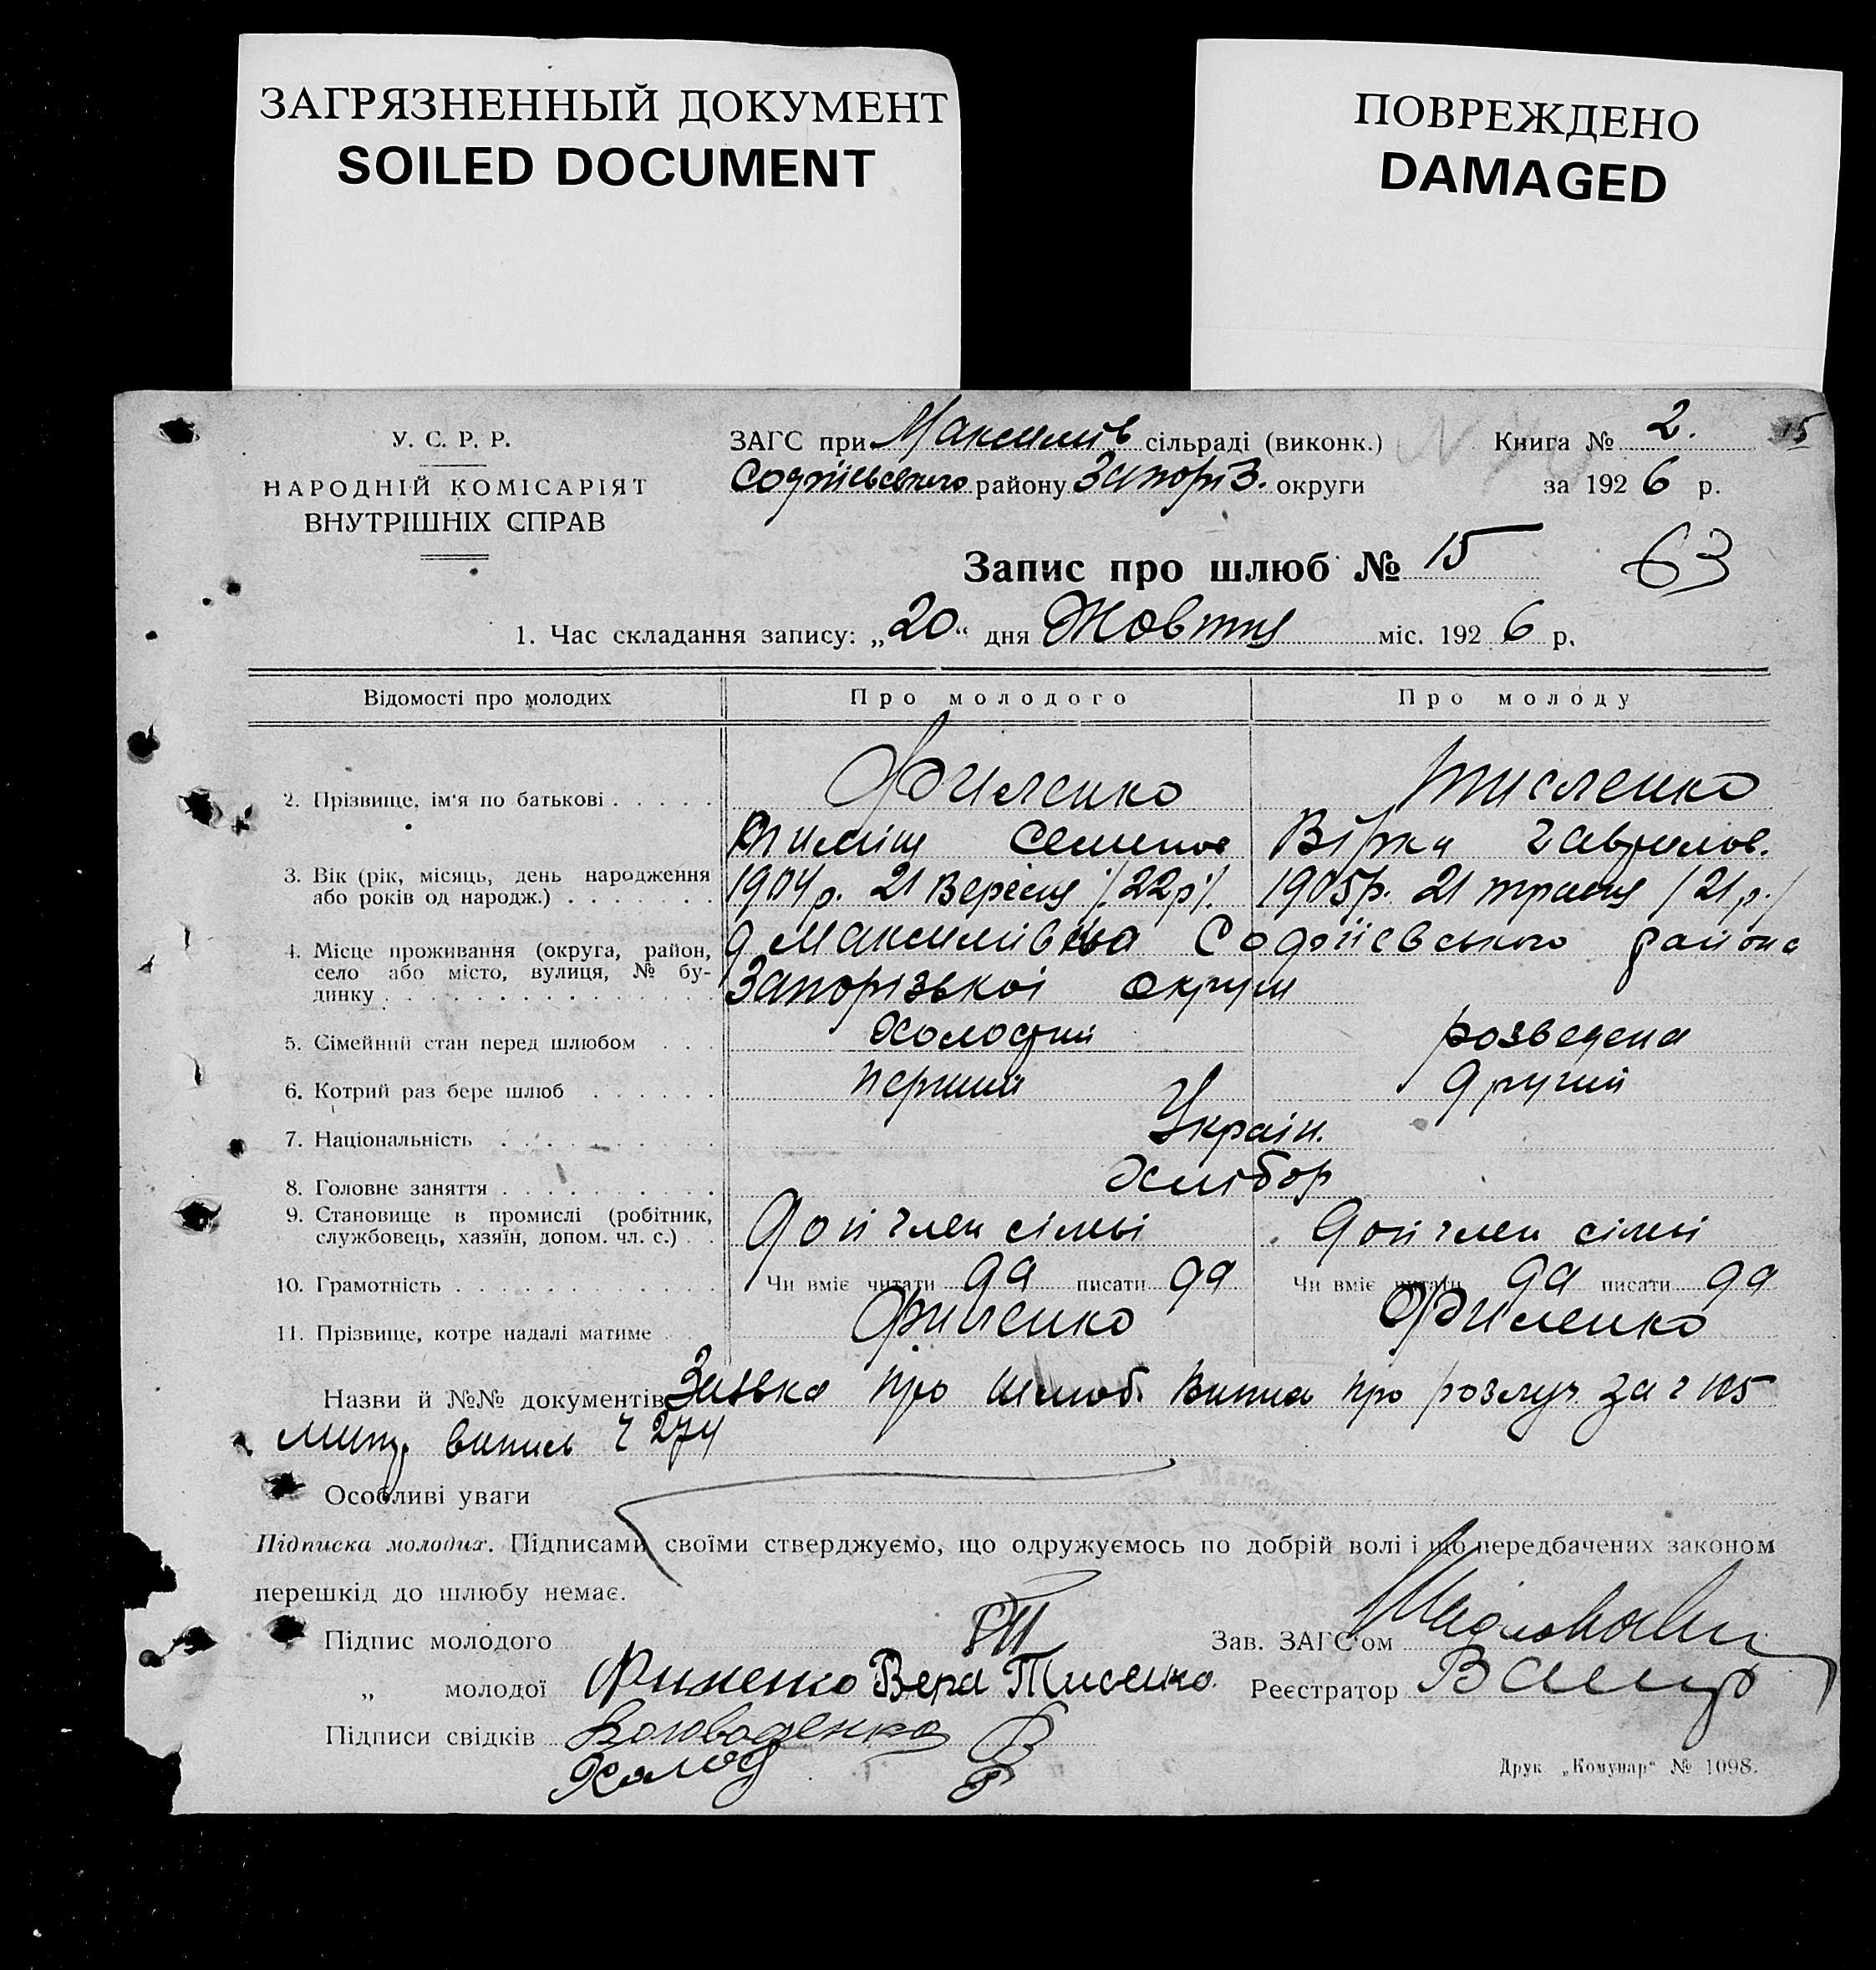 ЗАГРЯЗНЕННЫЙ ДОКУМЕНТ
SOILED DOCUMENT
ПОВРЕЖДЕНО
DAMAGED
У. С. Р. Р.
НАРОДНІЙ КОМІСАРІЯТ
ВНУТРІШНІХ СПРАВ
ЗАГС при Максимів сільраді (виконк.)
Софіївського району Запоріз. округи
Книга № 2.
15
за 1926 р.
Запис про шлюб № 15
63
1. Час складання запису: „20“ дня Жовтня міс. 1926 р.
Відомості про молодих Про молодого Про молоду
2. Прізвище, ім'я по батькові . . . . . Филенко Тисленко
Семенов Вірка Гаврилов.
3. Вік (рік, місяць, день народження
або років од народж.) . . . . . . . 1904 р. 21 Вересня /22 р/. 1905 р. 21 травня /21 р./
4. Місце проживання (округа, район,
село або місто, вулиця, № бу-
динку . . . . . . . . . . . . . . .
Софіївського района
Запорізької округи
5. Сімейний стан перед шлюбом . . . Холостий розведена
6. Котрий раз бере шлюб . . . . . . перший другий
7. Національність . . . . . . . . . . Україн.
8. Головне заняття . . . . . . . . . . Хлібор
9. Становище в промислі (робітник,
службовець, хазяїн, допом. чл. с.) . . доп член сімьі доп член сімьі
10. Грамотність . . . . . . . . . . . . Чи вміє читати да писати да Чи вміє читати да писати да
11. Прізвище, котре надалі матиме . . Филенко Филенко
Назви й №№ документів Заявка про шлюб. Випис про розлуч. за ч 105
випись ч 274
Особливі уваги
Підписка молодих. Підписами своїми стверджуємо, що одружуємось по добрій волі і що передбачених законом
перешкід до шлюбу немає.
Підпис молодого
Зав. ЗАГС'ом
„ молодої Филенко Вера Тисенко.
Реєстратор
Підписи свідків
Холод
Друк „Комунар“ № 1098.